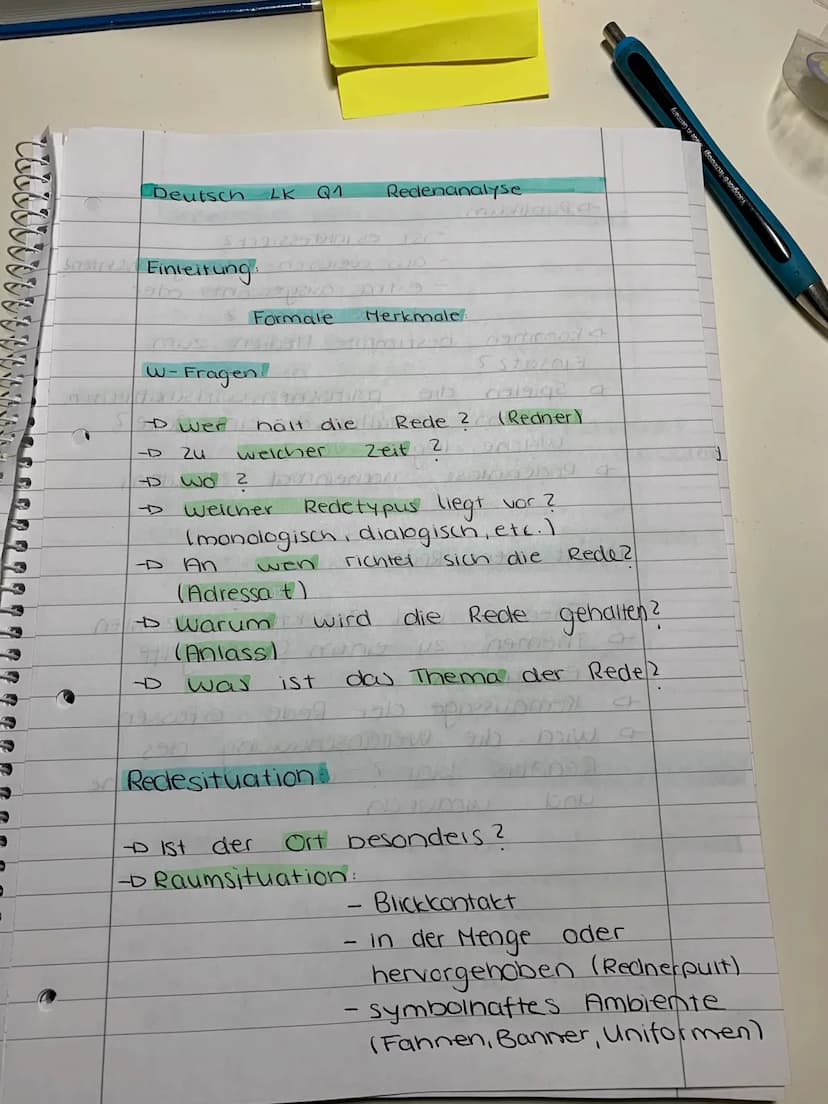 Deutsch LK Q1 Redenanalyse
Einleitung:
Formale Merkmale:
W-Fragen:
→ Wer hält die Rede? (Redner)
→ zu welcher Zeit?
→ Wo?
→ Welcher Redetypus liegt vor?
(monologisch, dialogisch, etc.)
→ An wen richtet sich die Rede?
(Adressat)
→ Warum wird die Rede gehalten?
(Anlass)
→ Was ist das Thema der Rede?
Redesituation:
→ Ist der Ort besonders?
→ Raumsituation:
- Blickkontakt
- in der Menge oder
hervorgehoben (Rednerpult)
- symbolhaftes Ambiente
(Fahnen, Banner, Uniformen)